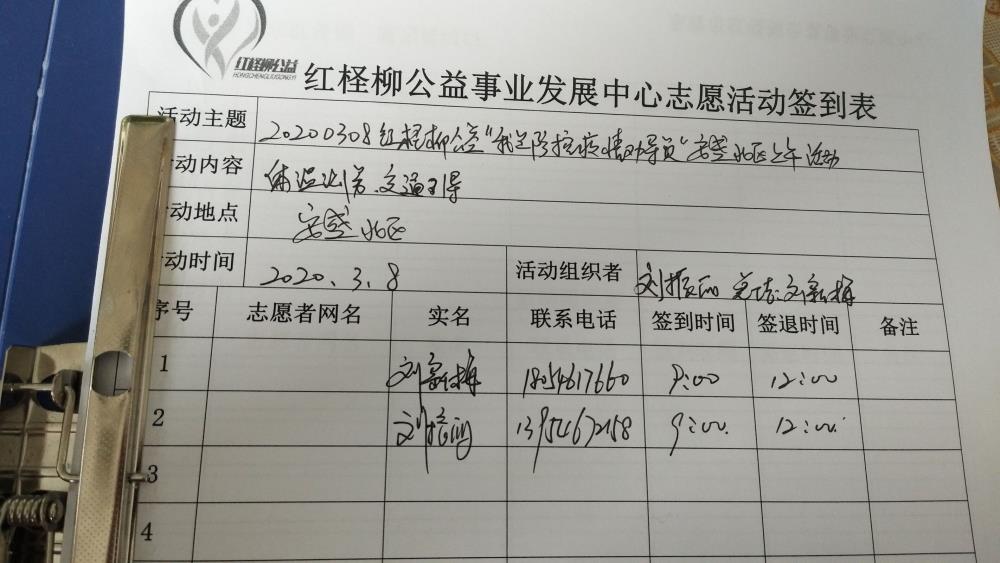 红柽柳公益
HONGCHENGLIUGONGYI
红柽柳公益事业发展中心志愿活动签到表
活动主题 20200308红柽柳公益“我是防控疫情劝导员”安盛北区上午活动
活动内容 体温测量、交通
活动地点 安盛北区
活动时间 2020.3.8 活动组织者 刘振 刘新梅
序号 志愿者网名 实名 联系电话 签到时间 签退时间 备注
1 刘新梅 18054617660 9:00 12:00
2 刘 9:00 12:00
3
4